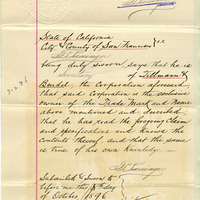 State of California
City & County of San Francisco } ss
being duly sworn says that he is
of Tillmann &
Bendel, the Corporation aforesaid,
that said Corporation is the exclusive
owner of the Trade Mark and Name
above mentioned and described
that he has read the foregoing Claim
and specifications and knows the
contents thereof and that the same
is true of his own knowledge.
Subscribed & Sworn to
before me this day
of October, 1896
3-296